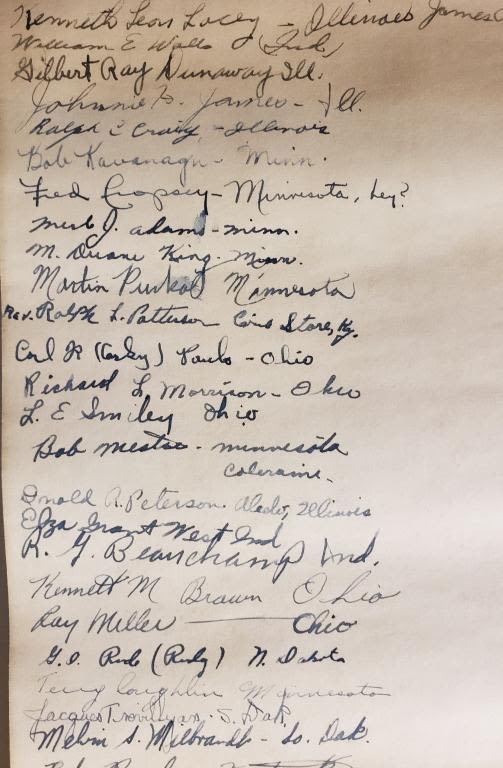 Kenneth Leon Lacey - Illinois James
William E Walls (Ind)
Gilbert Ray Dunaway Ill.
Johnnie B. James - Ill.
Ralph C Craig - Illinois
Bob Kavanagh - Minn.
Fred Cropsey - Minnesota, hey?
Merl J. Adams - Minn.
M. Duane King - Minn.
Martin Minnesota
Rev. Ralph L. Patterson Store, Ky.
Carl R (Corky) - Ohio
Richard L Morrison - Ohio
L. E Smiley Ohio
Bob - Minnesota
Coleraine.
Donald R. Peterson. Aledo, Illinois
Elza Grant West Ind
R. G. Beauchamp Ind.
Kenneth M Brown Ohio
Ray Miller — Ohio
G. O. Rude (Rudy) N. Dakota
Terry Coughlin Minnesota
Jacques S. Dak.
Melvin S. Milbrandt - So. Dak.